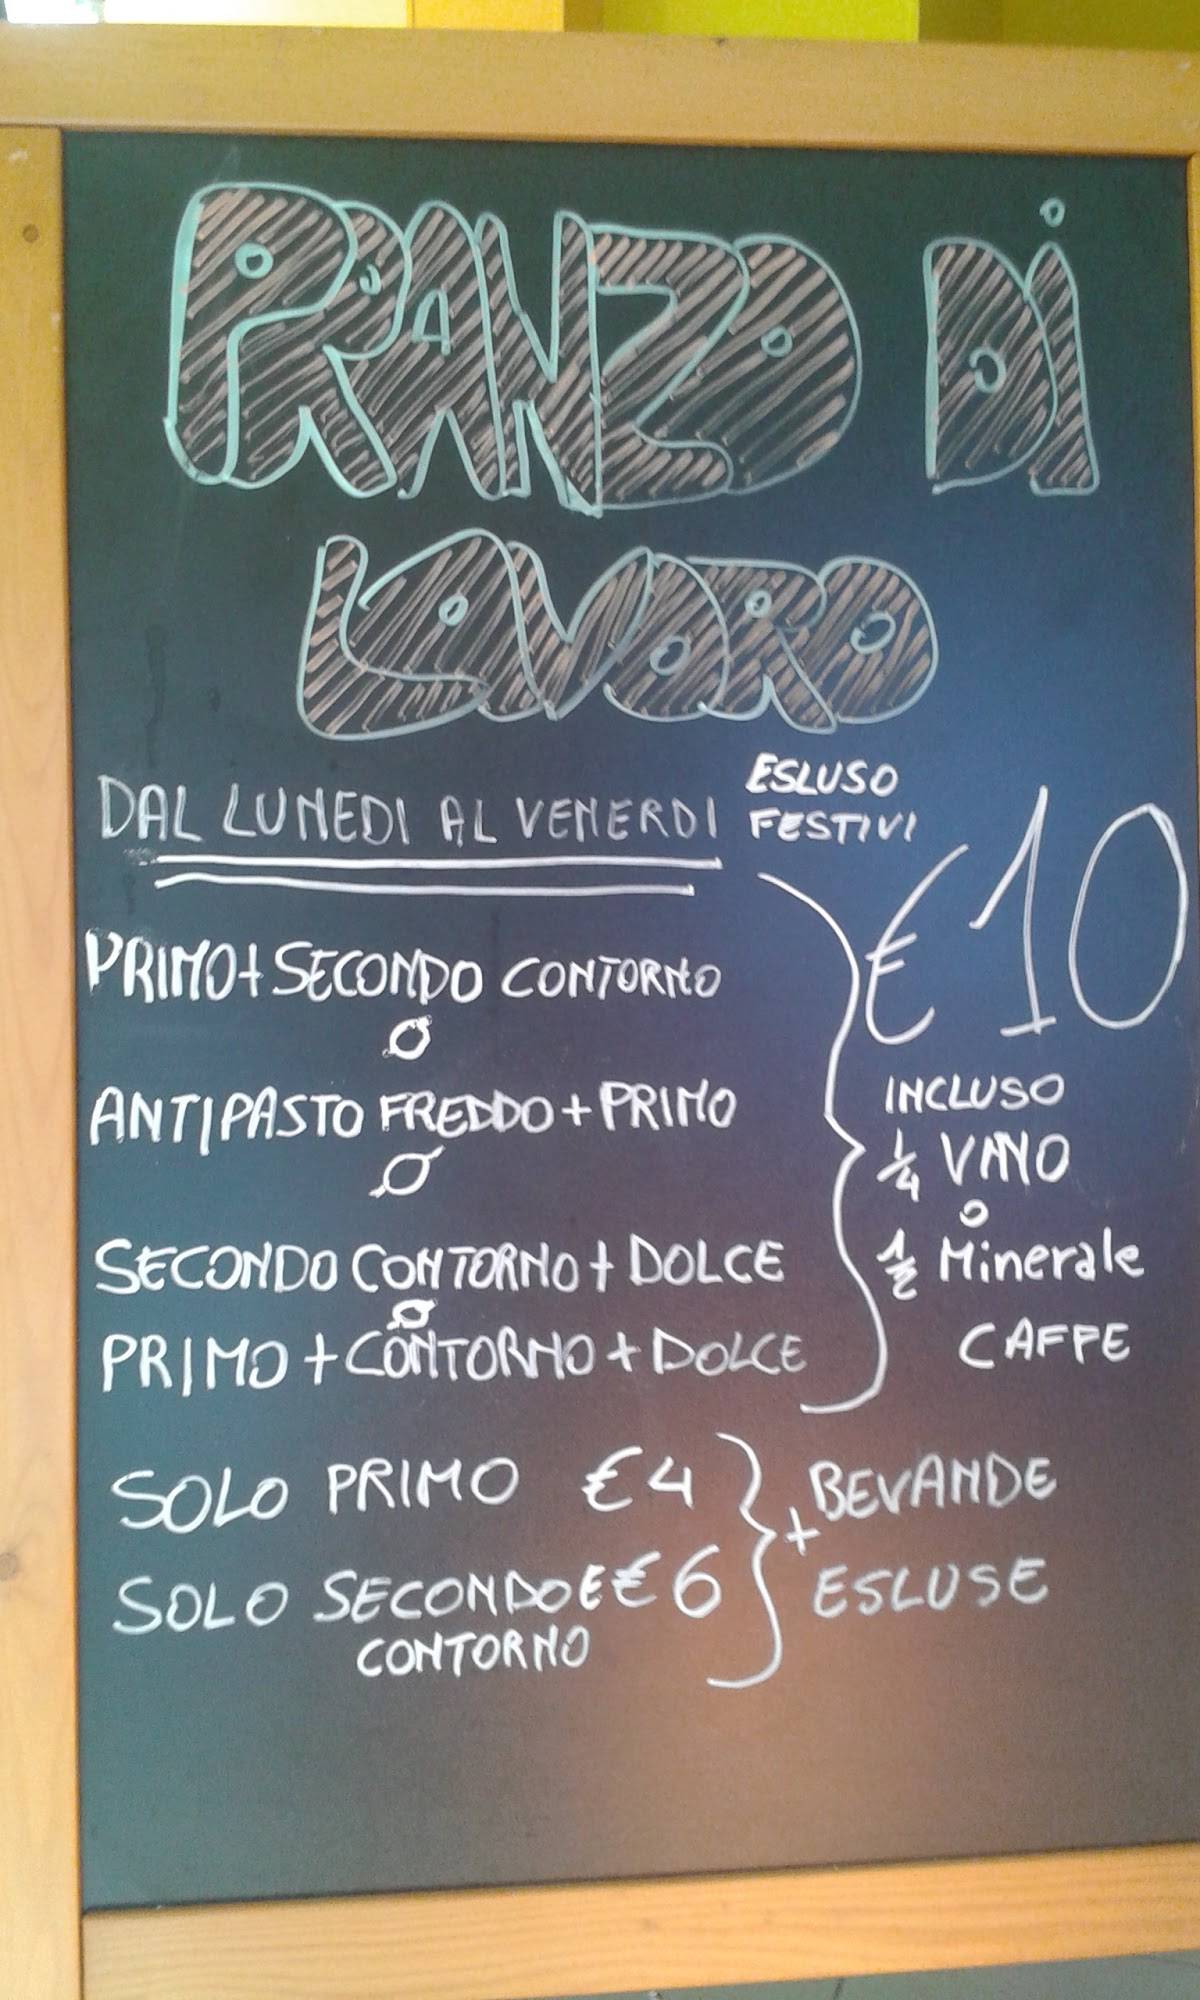 PRANZO DI
LAVORO
DAL LUNEDI AL VENERDI
ESLUSO
FESTIVI
PRIMO + SECONDO CONTORNO
O
ANTIPASTO FREDDO + PRIMO
O
SECONDO CONTORNO + DOLCE
O
PRIMO + CONTORNO + DOLCE
€10
INCLUSO
1/4 VINO
O
1/2 Minerale
CAFFE
SOLO PRIMO €4
SOLO SECONDO E €6
CONTORNO
+ BEVANDE
ESLUSE